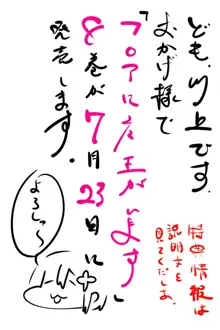 ども、川上です。
おかげ様で
「フロアに魔王がいます」
8巻が7月23日に
発売します。
よろしゅ〜
特典情報は
説明文を
見てくださいあ。